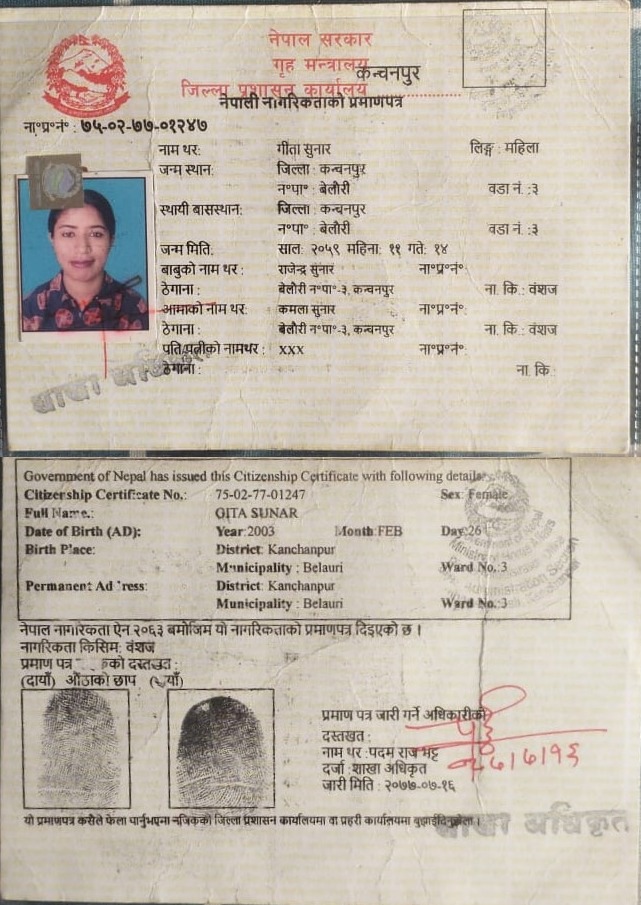 नेपाल सरकार
गृह मन्त्रालय
जिल्ला प्रशासन कार्यालय कन्चनपुर
नेपाली नागरिकताको प्रमाणपत्र
ना॰प्र॰नं॰ : ७५-०२-७७-०१२४७
नाम थर: गीता सुनार लिङ्ग : महिला
जन्म स्थान: जिल्ला : कन्चनपुर
न॰पा॰ : बेलौरी वडा नं. :३
स्थायी बासस्थान: जिल्ला : कन्चनपुर
न॰पा॰ : बेलौरी वडा नं. :३
जन्म मिति: साल: २०५९ महिना: ११ गते: १४
बाबुको नाम थर: राजेन्द्र सुनार ना॰प्र॰नं॰:
ठेगाना: बेलौरी न॰पा॰-३, कन्चनपुर ना. कि.: वंशज
आमाको नाम थर: कमला सुनार ना॰प्र॰नं॰:
ठेगाना: बेलौरी न॰पा॰-३, कन्चनपुर ना. कि.: वंशज
पति/पत्नीको नामथर: xxx ना॰प्र॰नं॰:
ठेगाना: ना. कि:
शाखा अधिकृत
Government of Nepal has issued this Citizenship Certificate with following details
Citizenship Certificate No.: 75-02-77-01247 Sex: Female
Full Name.: GITA SUNAR
Date of Birth (AD): Year:2003 Month:FEB Day:26
Birth Place: District: Kanchanpur
Municipality : Belauri Ward No.:3
Permanent Address: District: Kanchanpur
Municipality : Belauri Ward No.:3
नेपाल नागरिकता ऐन २०६३ बमोजिम यो नागरिकताको प्रमाणपत्र दिइएको छ ।
नागरिकता किसिम: वंशज
प्रमाण पत्र दस्तखत :
(दायाँ) औंठाको छाप (बायाँ)
प्रमाण पत्र जारी गर्ने अधिकारीको
दस्तखत :
नाम थर :पदम राज भट्ट
दर्जा :शाखा अधिकृत
जारी मिति : २०७७-०७-१६
यो प्रमाणपत्र कसैले फेला पार्नुभएमा नजिकको जिल्ला प्रशासन कार्यालयमा वा प्रहरी कार्यालयमा बुझाईदिनुहोला ।
शाखा अधिकृत